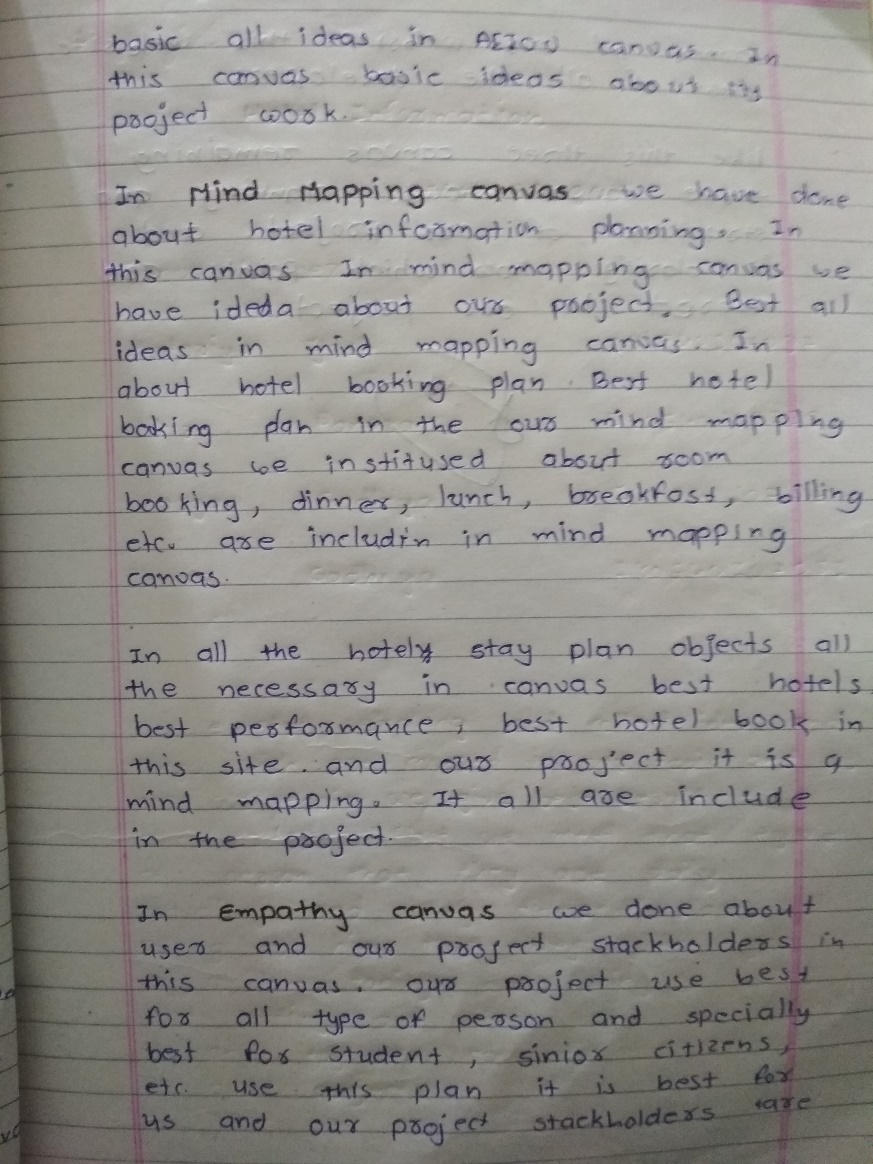 basic all ideas in AEIOU canvas. In
this canvas basic ideas about its
project work.
In Mind Mapping canvas we have done
about hotel information planning. In
this canvas In mind mapping canvas we
have ideda about our project. Best all
ideas in mind mapping canvas. In
about hotel booking plan. Best hotel
boking plan in the our mind mapping
canvas we institused about room
booking, dinner, lunch, breakfast, billing
etc. are includin in mind mapping
canvas.
In all the hotely stay plan objects all
the necessary in canvas best hotels
best performance, best hotel book in
this site. and our project it is a
mind mapping. It all are include
in the project.
In Empathy canvas we done about
user and our project stackholders in
this canvas. our project use best
for all type of person and specially
best for student, sinior citizens,
etc. use this plan it is best for
us and our project stackholders are